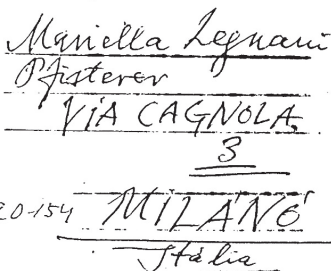 Mariella Legnani
Pfisterer
VIA CAGNOLA
3
20-154 MILÁNÓ
Itália